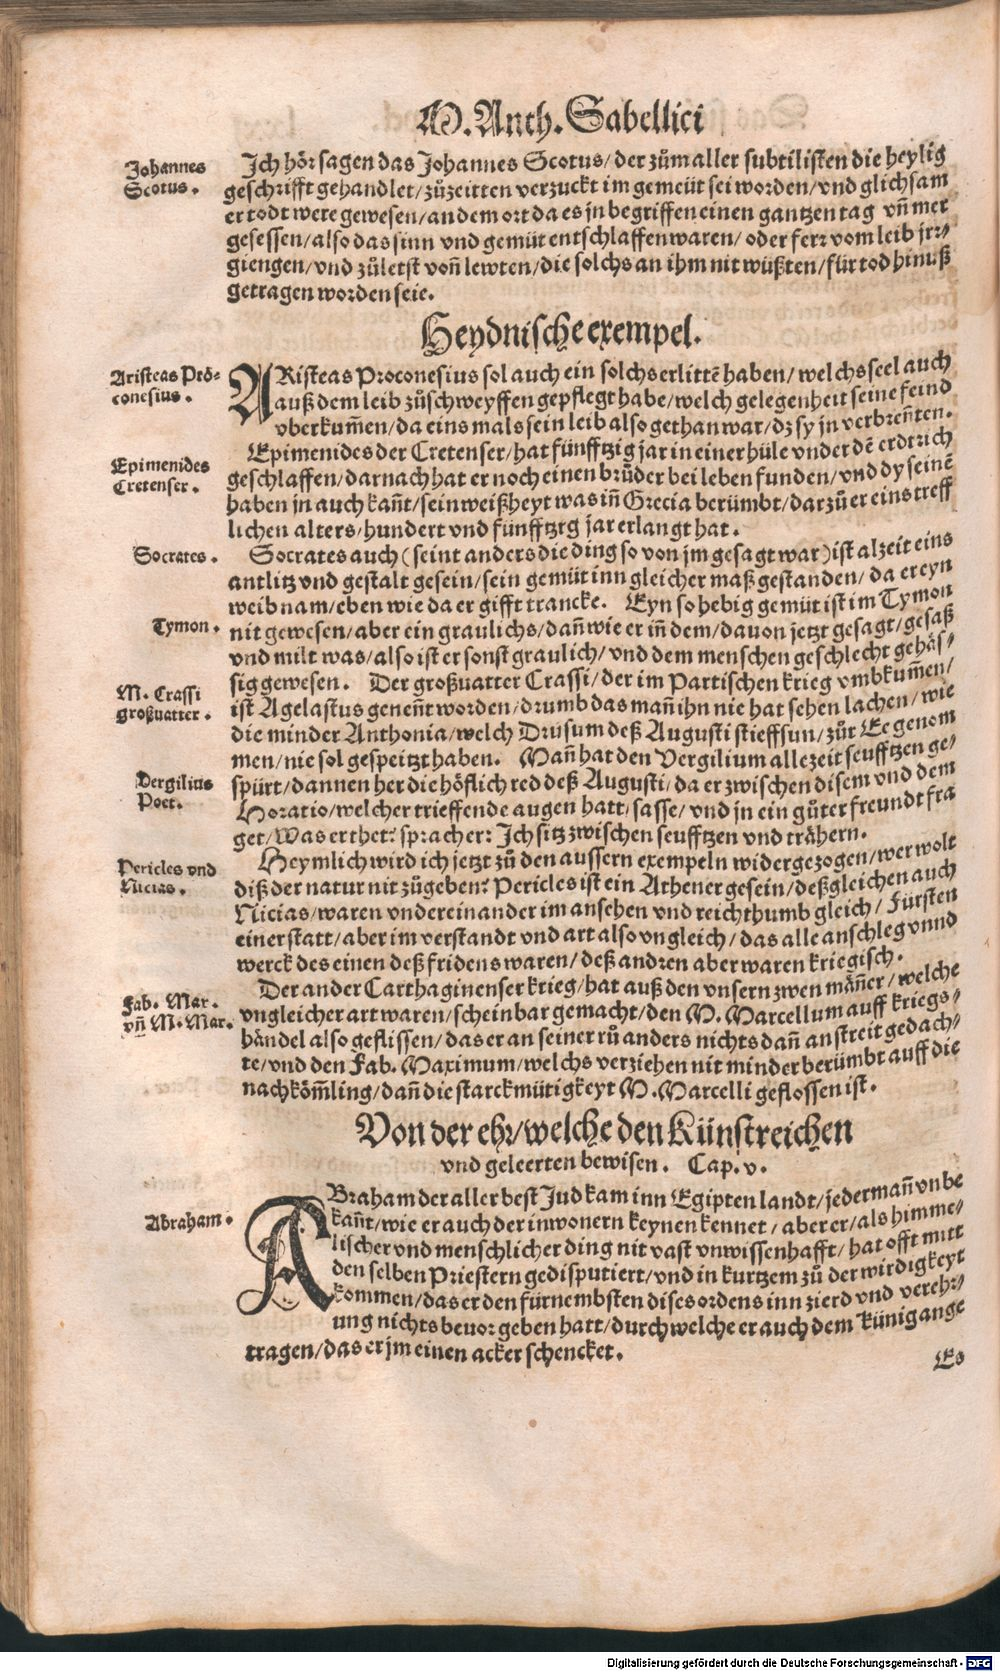 M. Anth. Sabellici
Johannes
Scotus.
Jch hör sagen das Johannes Scotus/ der zům aller subtilisten die heylig
geschrifft gehandlet/ zůzeitten verzuckt im gemeüt sei worden/ vnd glichsam
er todt were gewesen/ an dem ort da es jn begriffen einen gantzen tag vñ mer
gesessen/ also das sinn vnd gemüt entschlaffen waren/ oder ferr vom leib jrr⸗
giengen/ vnd zůletst voñ lewten/ die solchs an ihm nit wüßten/ für tod hinuß
getragen worden seie.
Heydnische exempel.
Aristeas Pro⸗
conesius.
ARisteas Proconesius sol auch ein solchs erlittē haben/ welchs seel auch
auß dem leib zůschweyffen gepflegt habe/ welch gelegenheit seine feind
vberkum̃en/ da eins mals sein leib also gethan war/ dz sy jn verbreñten.
Epimenides
Cretenser.
Epimenides der Cretenser/ hat fünfftzig jar in einer hüle vnder dē erdtrich
geschlaffen/ darnach hat er noch einen brůder bei leben funden/ vnd dy seinē
haben jn auch kañt/ sein weißheyt was iñ Grecia berümbt/ darzů er eins treff
lichen alters/ hundert vnd fünfftzrg jar erlangt hat.
Socrates.
Socrates auch (seint anders die ding so von jm gesagt war) ist alzeit eins
antlitz vnd gestalt gesein/ sein gemüt inn gleicher maß gestanden/ da er eyn
weib nam/ eben wie da er gifft trancke. Eyn so hebig gemüt ist im Tymon
Tymon.
nit gewesen/ aber ein graulichs/ dañ wie er iñ dem/ davon jetzt gesagt/ gesaß
vnd milt was/ also ist er sonst graulich/ vnd dem menschen geschlecht gehäs⸗
sig gewesen. Der großuatter Crassi/ der im Partischen krieg vmbkum̃en/
M. Crassi
großuatter.
ist Agelastus geneñt worden/ drumb das mañ ihn nie hat sehen lachen/ wie
die minder Anthonia/ welch Drusum deß Augusti stieffsun/ zůr Ee genom
men/ nie sol gespeitzt haben. Mañ hat den Vergilium allezeit seufftzen ge⸗
Vergilius
Poet.
spürt/ dannen her die höflich red deß Augusti/ da er zwischen disem vnd dem
Horatio/ welcher trieffende augen hatt/ sasse/ vnd jn ein gůter freundt fra
get/ Was er thet? sprach er: Jch sitz zwischen seufftzen vnd trähern.
Pericles vnd
Nicias.
Heymlich wird ich jetzt zů den aussern exempeln widergezogen/ wer wolt
diß der natur nit zůgeben? Pericles ist ein Athener gesein/ deßgleichen auch
Nicias/ waren vndereinander im ansehen vnd reichthumb gleich/ Fürsten
einer statt/ aber im verstandt vnd art also vngleich/ das alle anschleg vnnd
werck des einen deß fridens waren/ deß andren aber waren kriegisch.
Fab. Mar.
vñ M. Mar.
Der ander Carthaginenser krieg/ hat auß den vnsern zwen mäñer/ welche
vngleicher art waren/ scheinbar gemacht/ den M. Marcellum auff kriegs⸗
händel also geflissen/ das er an seiner rů anders nichts dañ an streit gedach⸗
te/ vnd den Fab. Maximum/ welchs verziehen nit minder berümbt auff die
nachköm̃ling/ dañ die starckmütigkeyt M. Marcelli geflossen ist.
Von der ehr/ welche den Künstreichen
vnd geleerten bewisen. Cap. v.
Abraham.
ABraham der aller best Jud kam inn Egipten landt/ jederman̄ vnbe
kañt/ wie er auch der inwonern keynen kennet/ aber er/ als himme⸗
lischer vnd menschlicher ding nit vast vnwissenhafft/ hat offt mitt
den selben Priestern gedisputiert/ vnd in kurtzem zů der wirdigkeyt
kommen/ das er den fürnembsten dises ordens inn zierd vnd verehr⸗
ung nichts beuor geben hatt/ durch welche er auch dem künig ange
tragen/ das er jm einen acker schencket.
Es
Digitalisierung gefördert durch die Deutsche Forschungsgemeinschaft - DFG